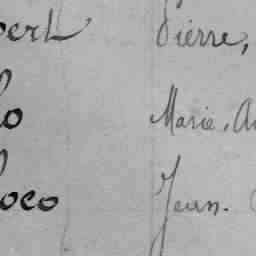 berL Pierre,
lo Marie, Au
loco Jean.